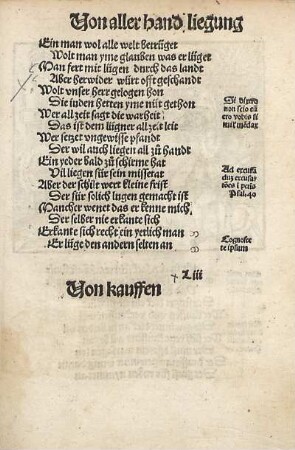 Von aller hand liegung
Ein man wol alle welt betrüget
Wolt man yme glauben was er lüget
Man fert mit lügen durch das landt
Aber herwider würt offt geschandt
Wolt vnser herr gelogen hon
Die iuden hetten yme nüt gethon
Wer all zeit sagt die warheit
Das ist dem lügner all zeit leit
Wer setzet vngewisse pfandt
Der wil auch liegen all zů handt
Ein yeder bald zů schirme hat
Vil liegen für sein missetat
Aber der schür wert kleine frist
Der für solich lugen gemacht ist
Mancher wenet das er kenne mich
Der selber nie erkante sich
Erkante sich recht ein yerlich man
Er lüge den andern selten an
Si dixero
non scio eū
ero vobis si
milis mēdax
Ad excusā
dus excusa
tiões i
Psal. 40
Cognosce
te ipsum
Liii
Von kauffen